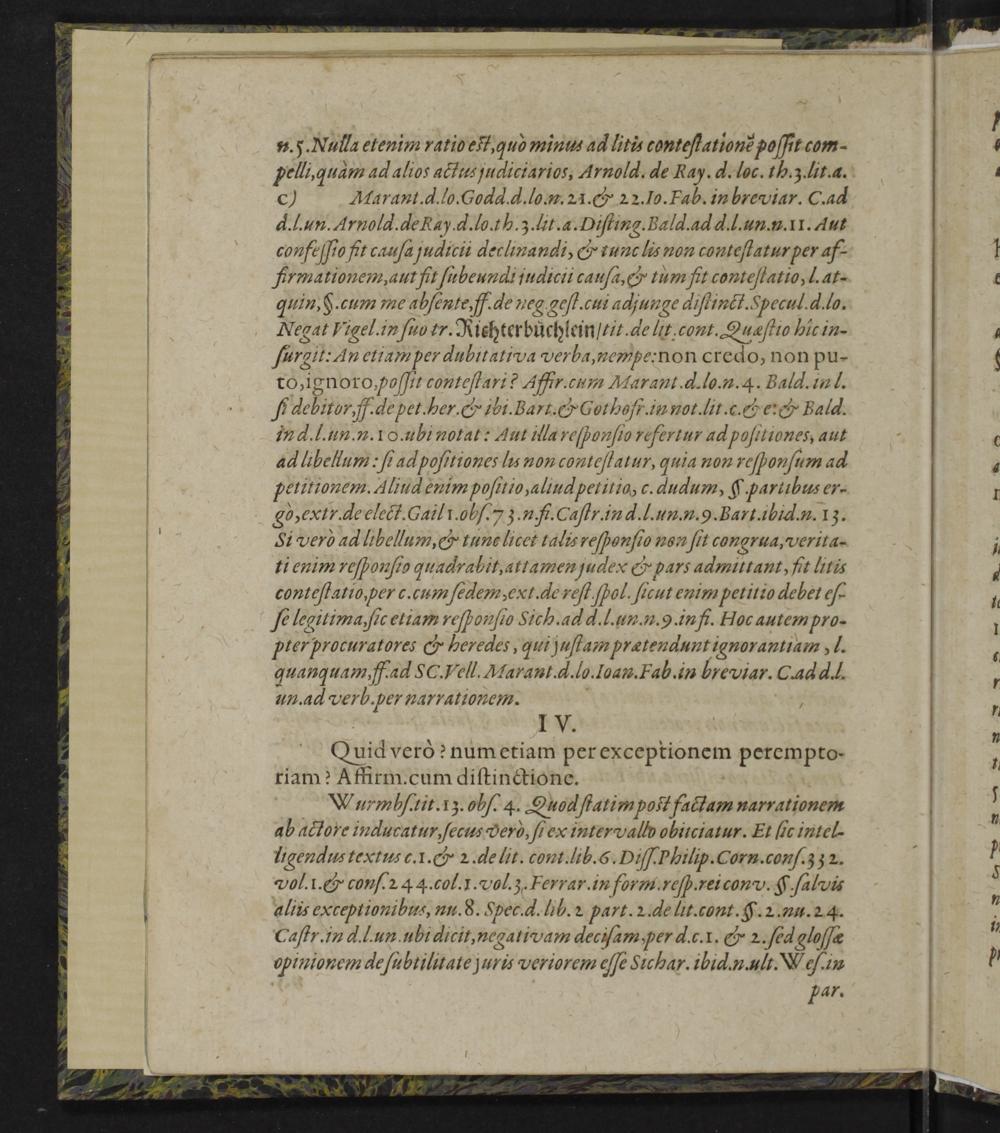 n.5. Nulla etenim ratio est, quò minus ad litis contestationẽ possit com-
pelli, quàm ad alios actus judiciarios, Arnold. de Ray. d. loc. th.3. lit.a.
c) Marant. d. lo. Godd. d. lo. n. 21. & 22. Io. Fab. in breviar. C. ad
d.l.un. Arnold. de Ray. d. lo. th. 3. lit. a. Disting. Bald. ad d.l.un. n. 11. Aut
confessio fit causa judicii declinandi, & tunc lis non contestatur per af-
firmationem, aut fit subeundi judicii causa, & tùm fit contestatio, l. at-
quin, §. cum me absente, ff. de neg. gest. cui adjunge distinct. Specul. d. lo.
Negat Vigel. in suo tr. Richterbüchlein/ tit. de lit. cont. Quæstio hîc in-
surgit: An etiam per dubitativa verba, nempe: non credo, non pu-
to, ignoro, possit contestari? Affir. cum Marant. d. lo. n. 4. Bald. in l.
si debitor, ff. de pet. her. & ibi. Bart. & Gothofr. in not. lit. c. & e: & Bald.
in d. l. un. n. 10. ubi notat: Aut illa responsio refertur ad positiones, aut
ad libellum: si ad positiones lis non contestatur, quia non responsum ad
petitionem. Aliud enim positio, aliud petitio, c. dudum, §. partibus er-
gò, extr. de elect. Gail 1. obs. 73. n. fi. Castr. in d. l. un. n. 9. Bart. ibid. n. 13.
Si verò ad libellum, & tunc licet talis responsio non sit congrua, verita-
ti enim responsio quadrabit, attamen judex & pars admittant, fit litis
contestatio, per c. cum sedem, ext. de rest. spol. sicut enim petitio debet es-
se legitima, sic etiam responsio Sich. ad d. l. un. n. 9. in fi. Hoc autem pro-
pter procuratores & heredes, qui justam prætendunt ignorantiam, l.
quanquam, ff. ad SC. Vell. Marant. d. lo. Ioan. Fab. in breviar. C. ad d. l.
un. ad verb. per narrationem.
IV.
Quid verò? num etiam per exceptionem perempto-
riam? Affirm. cum distinctione.
Wurmbs. tit. 13. obs. 4. Quod statim post factam narrationem
ab actore inducatur, secus verò, si ex intervallo obiiciatur. Et sic intel-
ligendus textus c. 1. & 2. de lit. cont. lib. 6. Diss. Philip. Corn. cons. 332.
vol. 1. & cons. 244. col. 1. vol. 3. Ferrar. in form. resp. rei conv. §. salvis
aliis exceptionibus, nu. 8. Spec. d. lib. 2 part. 2. de lit. cont. §. 2. nu. 24.
Castr. in d. l. un. ubi dicit, negativam decisam, per d. c. 1. & 2. sed glossæ
opinionem de subtilitate juris veriorem esse Sichar. ibid. n. ult. Wes. in
par.